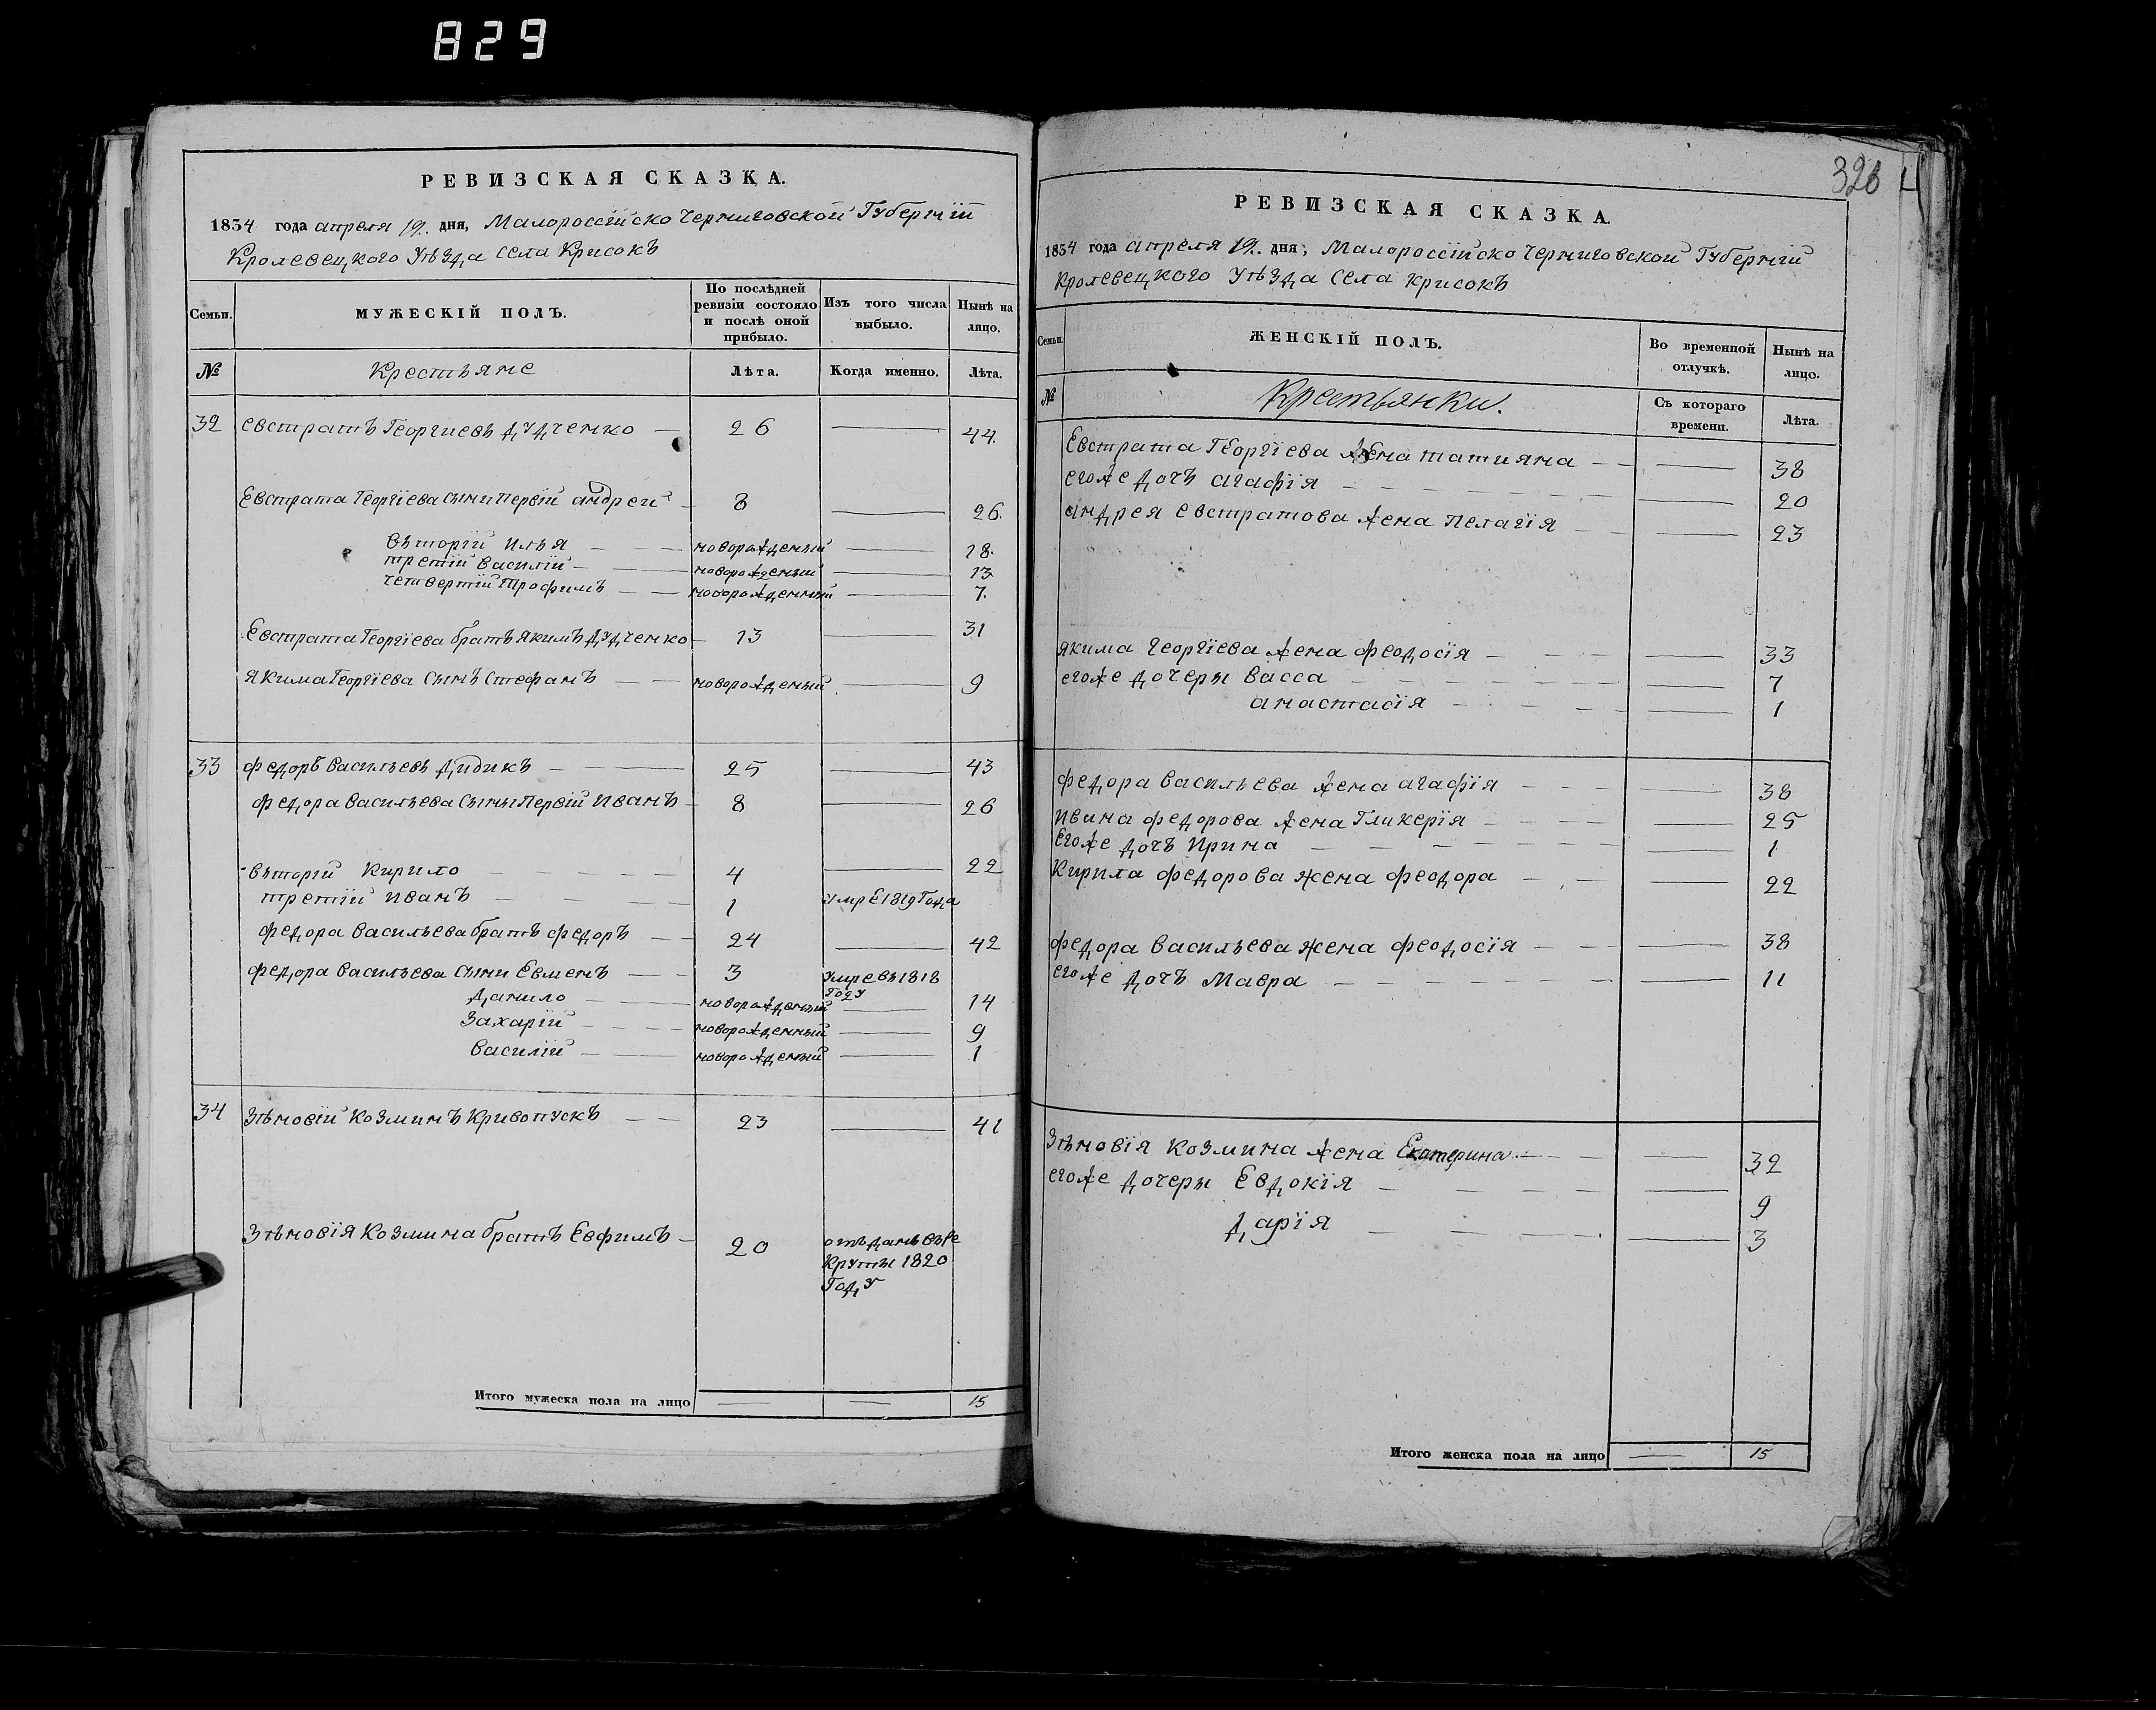 829
РЕВИЗСКАЯ СКАЗКА.
1834 года апреля 19. дня, Малороссїйско Черниговской Губернїй
Кролевецкого Уѣзда села Крисокъ
Семьи.
МУЖЕСКІЙ ПОЛЪ.
По послѣдней ревизіи состояло и послѣ оной прибыло.
Изъ того числа выбыло.
Нынѣ на лицо.
№ Крестьяне Лѣта. Когда именно. Лѣта.
32 евстратъ Георгиевъ дудченко — 26 — 44.
Евстрата Георгїева сыни первїй андрей — 8 — 26.
вторїй илья — новорожденый — 18.
третїй василїй — новорожденый — 13
четвертїй трофимъ — новорожденный — 7.
Евстрата Георгїева братъ якимъ дудченко — 13 — 31
Якима Георгїева сынъ Стефанъ — новорожденый — 9
33 федоръ васильевъ дидикъ — 25 — 43
федора васильева сыны первїй иванъ — 8 — 26
вторїй кирило — 4 — 22
третїй иванъ — 1 умре 1819 Года
федора васильева братъ федоръ — 24 — 42
федора васильева сыни Евменъ — 3 умре въ 1818 Году
данило — новорожденый — 14
Захарїй — новорожденный — 9
василїй — новорожденый — 1
34 Зѣновїй козминъ кривопускъ — 23 — 41
Зѣновїя козмина братъ Евфимъ — 20 отъданъ въре
круты 1820
Году
Итого мужеска пола на лицо — — 15
326
РЕВИЗСКАЯ СКАЗКА.
1834 года апреля 19. дня, Малороссїйско Черниговской Губернїй
Кролевецкого Уѣзда села крисокъ
Семьи.
ЖЕНСКІЙ ПОЛЪ.
Во временной отлучкѣ.
Нынѣ на лицо.
№ Крестьянки. Съ котораго времени. Лѣта.
Евстрата Георгїева жена татияна — — 38
егоже дочъ агафїя — — 20
андрея евстратова жена пелагїя — — 23
якима георгїева жена феодосїя — — 33
егоже дочеры васса — — 7
анастасїя — — 1
федора васильева жена агафїя — — 38
ивина федорова жена Гликерїя — — 25
Егоже дочъ Ирина — — 1
Кирила федорова жена феодора — — 22
федора васильева жена феодосїя — — 38
егоже дочъ Мавра — — 11
Зѣновїя козмина жена Екатерина — — 32
егоже дочеры Евдокїя — — 9
дарїя — — 3
Итого женска пола на лицо — 15